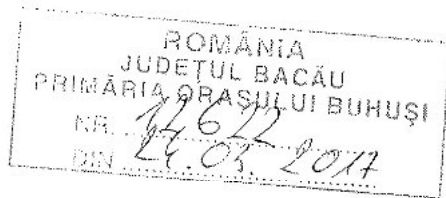 ROMÂNIA
JUDEȚUL BACĂU
PRIMĂRIA ORAȘULUI BUHUȘI
NR.
DIN 24.03.2017